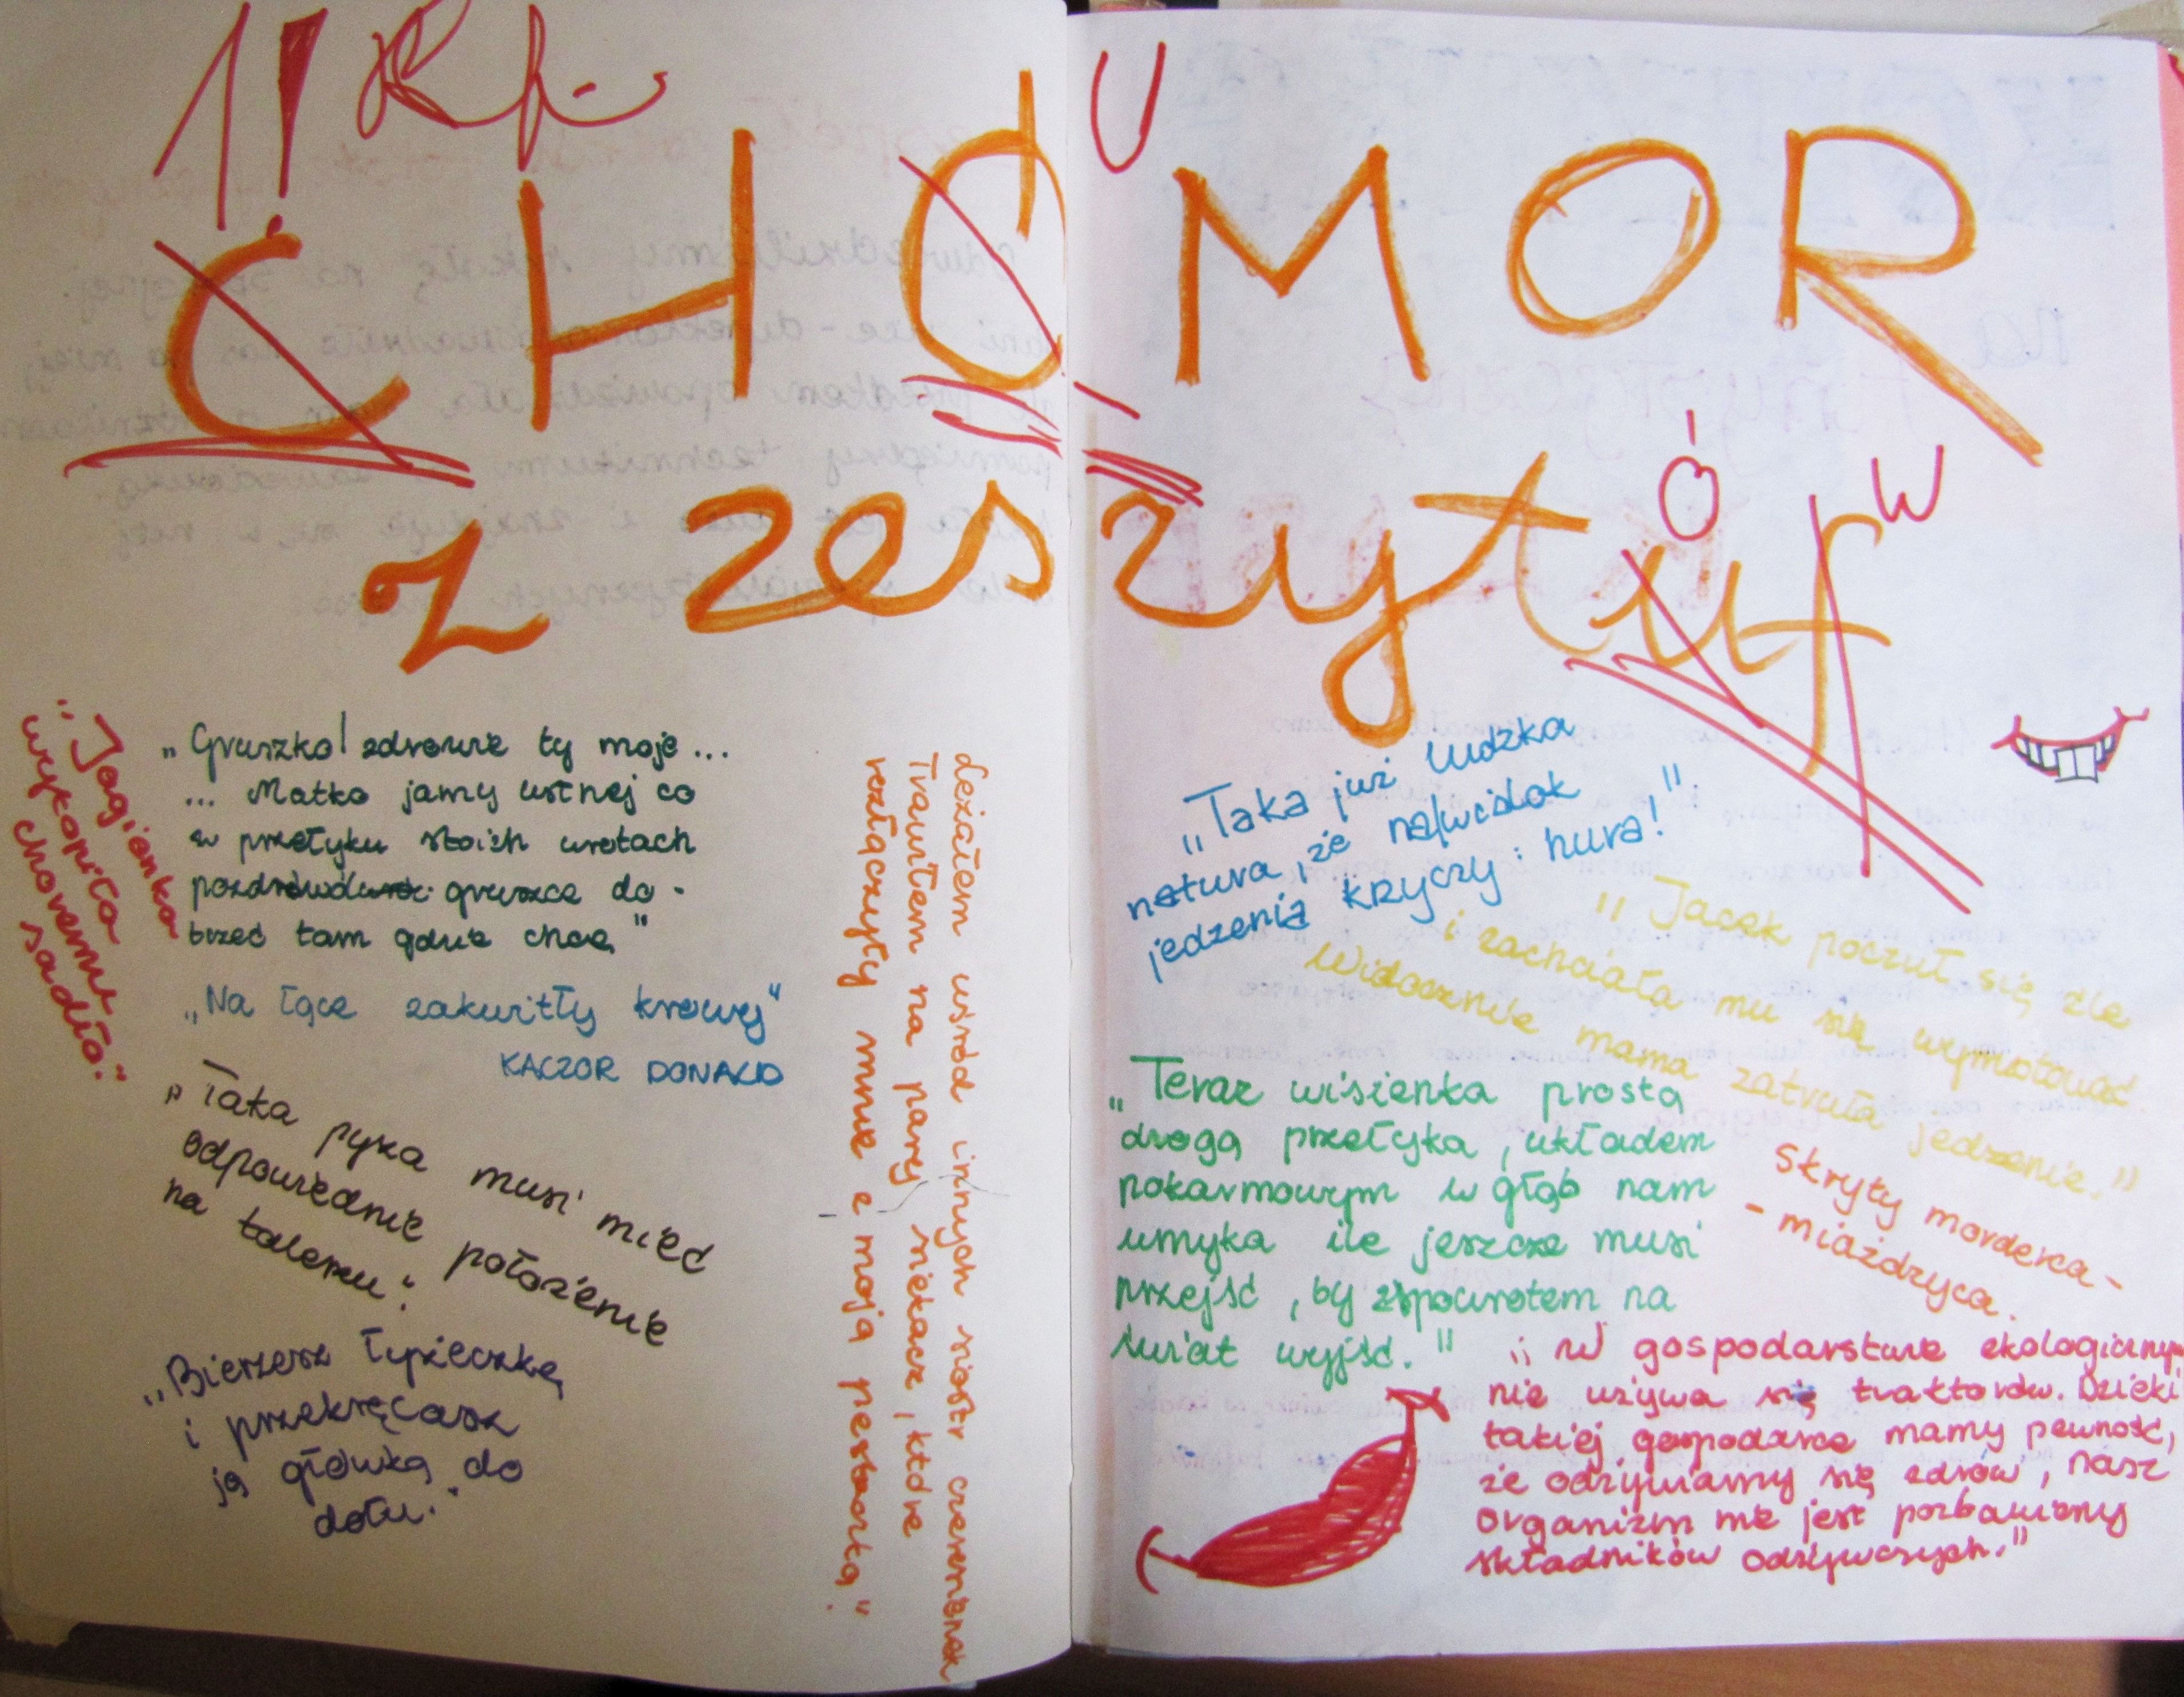 CHÓMOR
U
z zeszytuf
ó w
„Jagienka
wykopiła
choremu
sadło."
„Gruszko! zdrowie ty moje...
... Matko jamy ustnej co
w przełyku stoish wrotach
gruszce do-
brzeć tam gdzie chce"
„Na łące zakwitły krowy"
KACZOR DONALD
„Taka pyza musi mieć
odpowiednie położenie
na talerzu".
„Bierzesz łyżeczkę
i przekręcasz
ją główką do
dołu."
Leżałem wśród innych sióstr czereśnionek
Trawiłem na parę siekacz, które
rozłączyły mnie z moją pestką".
„Taka już ludzka
natura, że na widok
jedzenia krzyczy: hura!"
„Jacek poczuł się źle
i zachciało mu się wymiotować.
Widocznie mama zatruła jedzenie."
„Teraz wisienka prostą
drogą przełyka, układem
pokarmowym w głąb nam
umyka ile jeszcze musi
przejść, by zpowrotem na
świat wyjść."
Skryty morderca -
- miażdżyca.
„W gospodarstwie ekologicznym
nie używa się traktorów. Dzięki
takiej gospodarce mamy pewność,
że odżywiamy się zdrow, nasz
organizm nie jest pozbawiony
składników odżywczych."